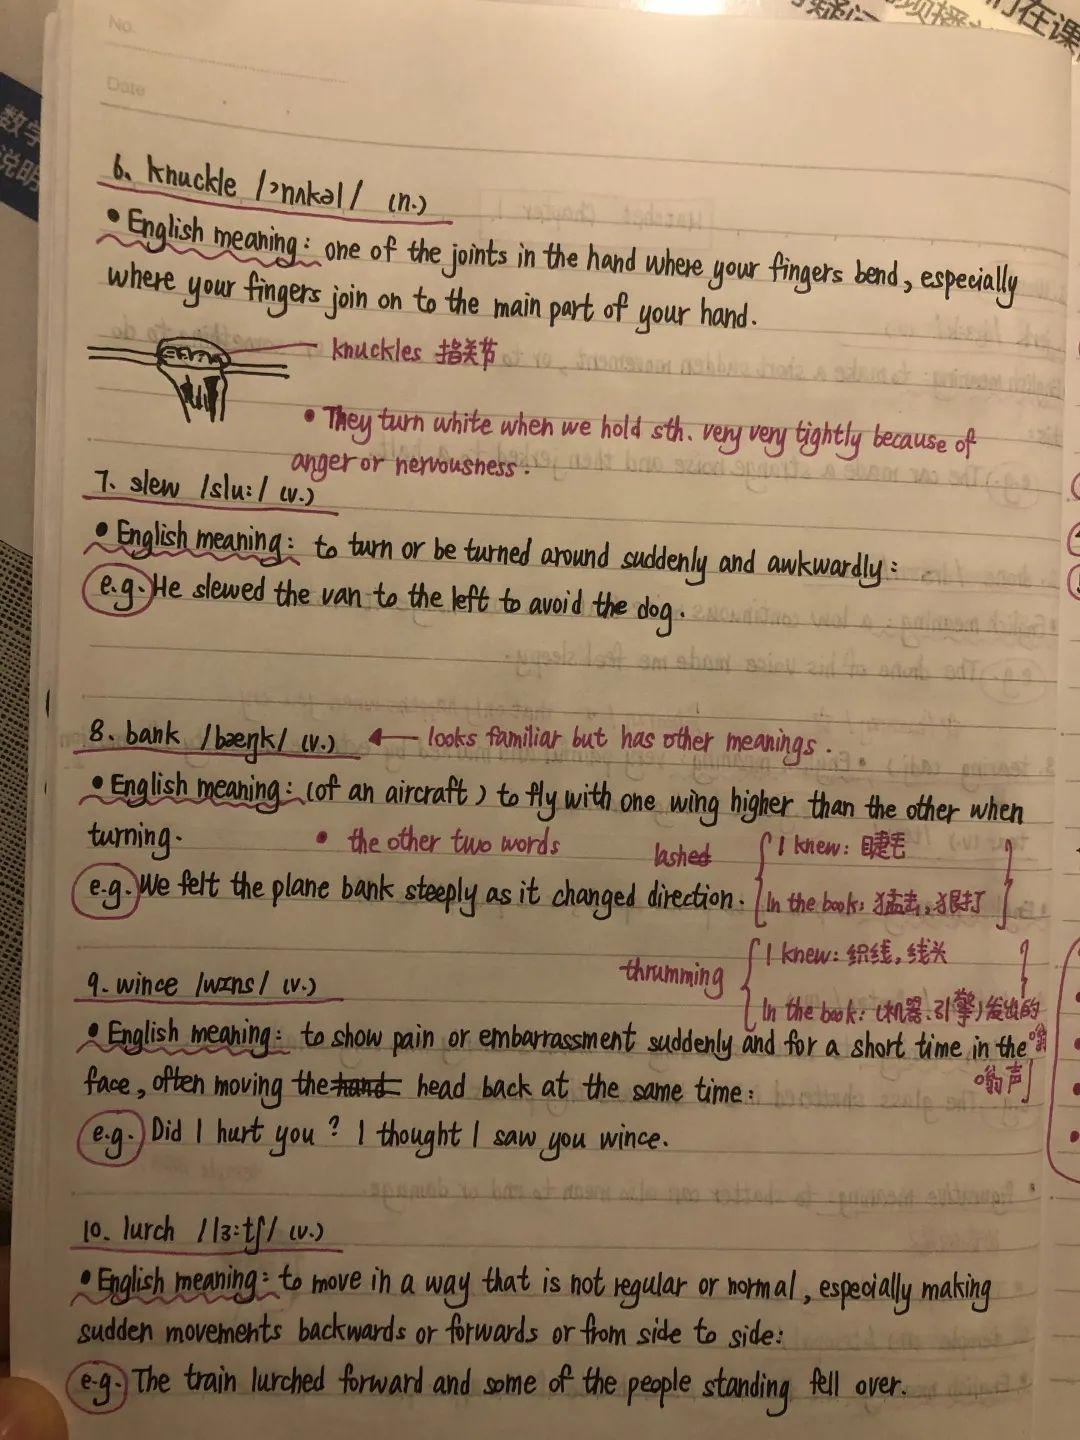 No.
Date
数学
说明
6. knuckle /ˈnʌkəl/ (n.)
• English meaning: one of the joints in the hand where your fingers bend, especially
where your fingers join on to the main part of your hand.
knuckles 指关节
• They turn white when we hold sth. very very tightly because of
anger or nervousness.
7. slew /slu:/ (v.)
• English meaning: to turn or be turned around suddenly and awkwardly:
e.g. He slewed the van to the left to avoid the dog.
8. bank /bæŋk/ (v.) ← looks familiar but has other meanings.
• English meaning: (of an aircraft) to fly with one wing higher than the other when
turning.
• the other two words
lashed { I knew: 睫毛
In the book: 猛击,狠打
e.g. We felt the plane bank steeply as it changed direction.
thrumming { I knew: 织线,线头
In the book: (机器.引擎)发出的
嗡
嗡声
9. wince /wɪns/ (v.)
• English meaning: to show pain or embarrassment suddenly and for a short time in the
face, often moving the hand head back at the same time:
e.g. Did I hurt you? I thought I saw you wince.
10. lurch /lɜ:tʃ/ (v.)
• English meaning: to move in a way that is not regular or normal, especially making
sudden movements backwards or forwards or from side to side:
e.g. The train lurched forward and some of the people standing fell over.